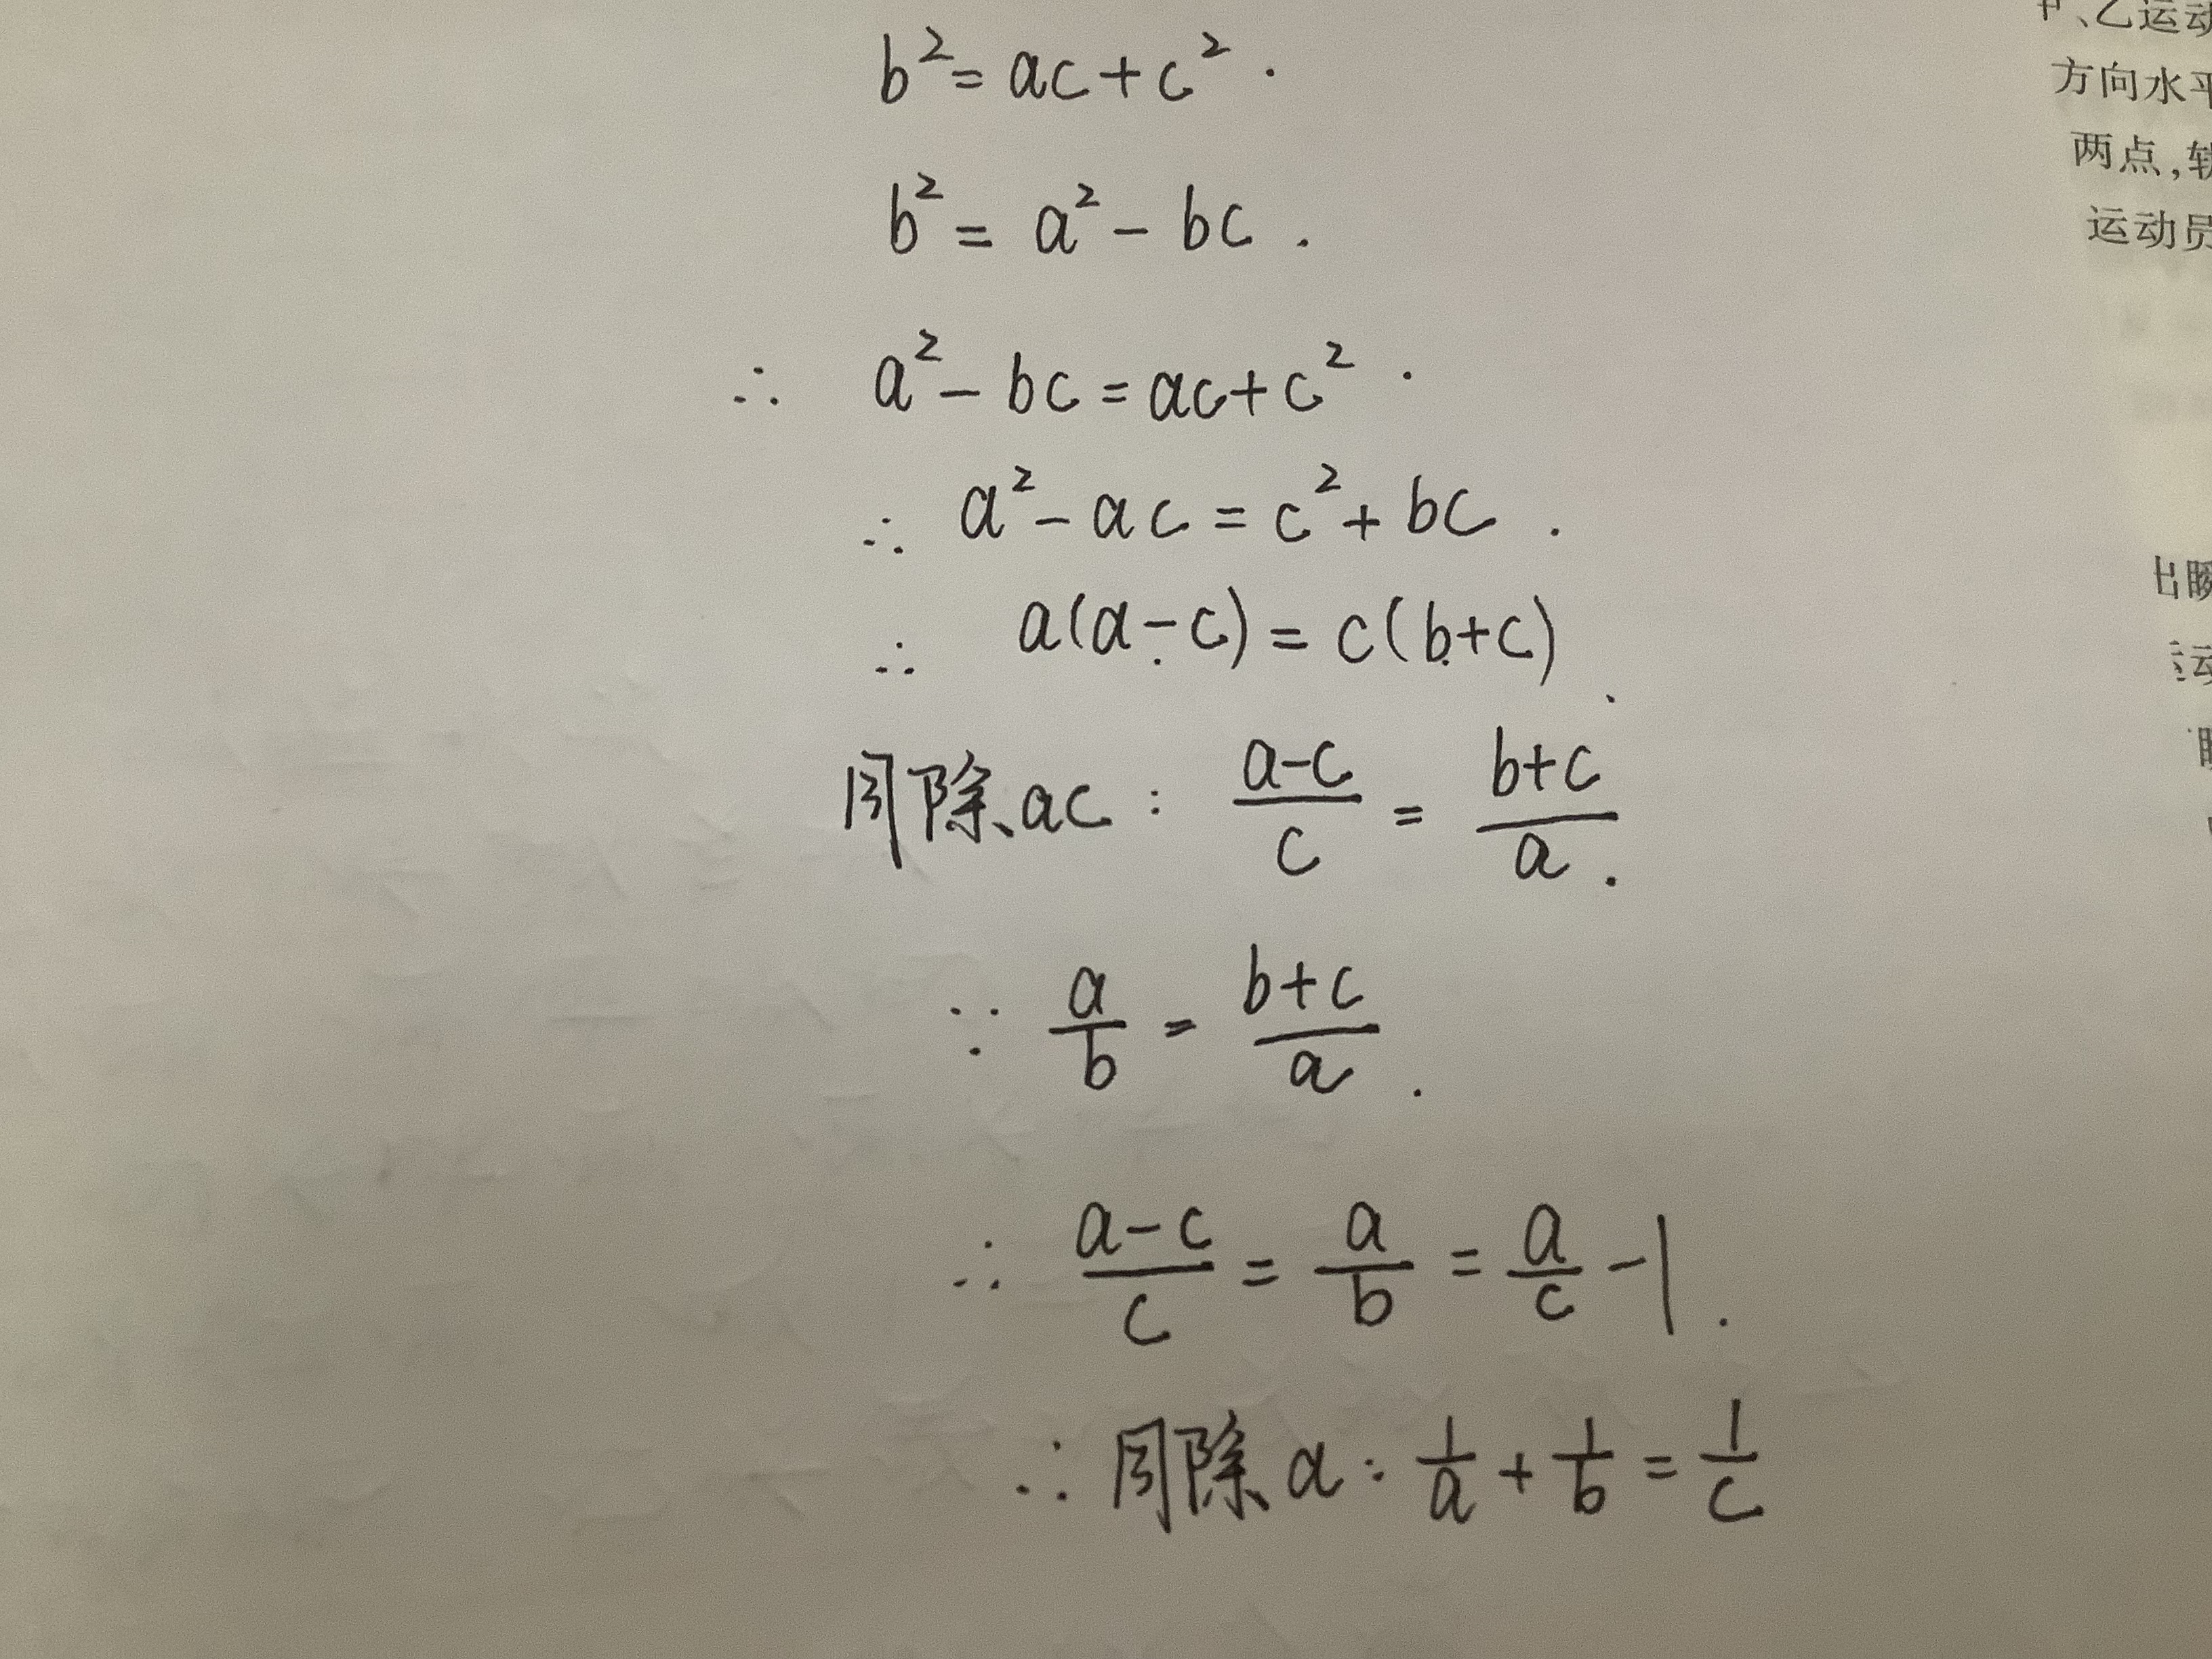 b²=ac+c².
b²=a²-bc.
∴ a²-bc=ac+c².
∴ a²-ac=c²+bc.
∴ a(a-c)=c(b+c).
同除ac: (a-c)/c=(b+c)/a.
∵ a/b=(b+c)/a.
∴ (a-c)/c=a/b=a/c-1.
∴同除a: 1/a+1/b=1/c
、乙运动
方向水平
两点,
运动员